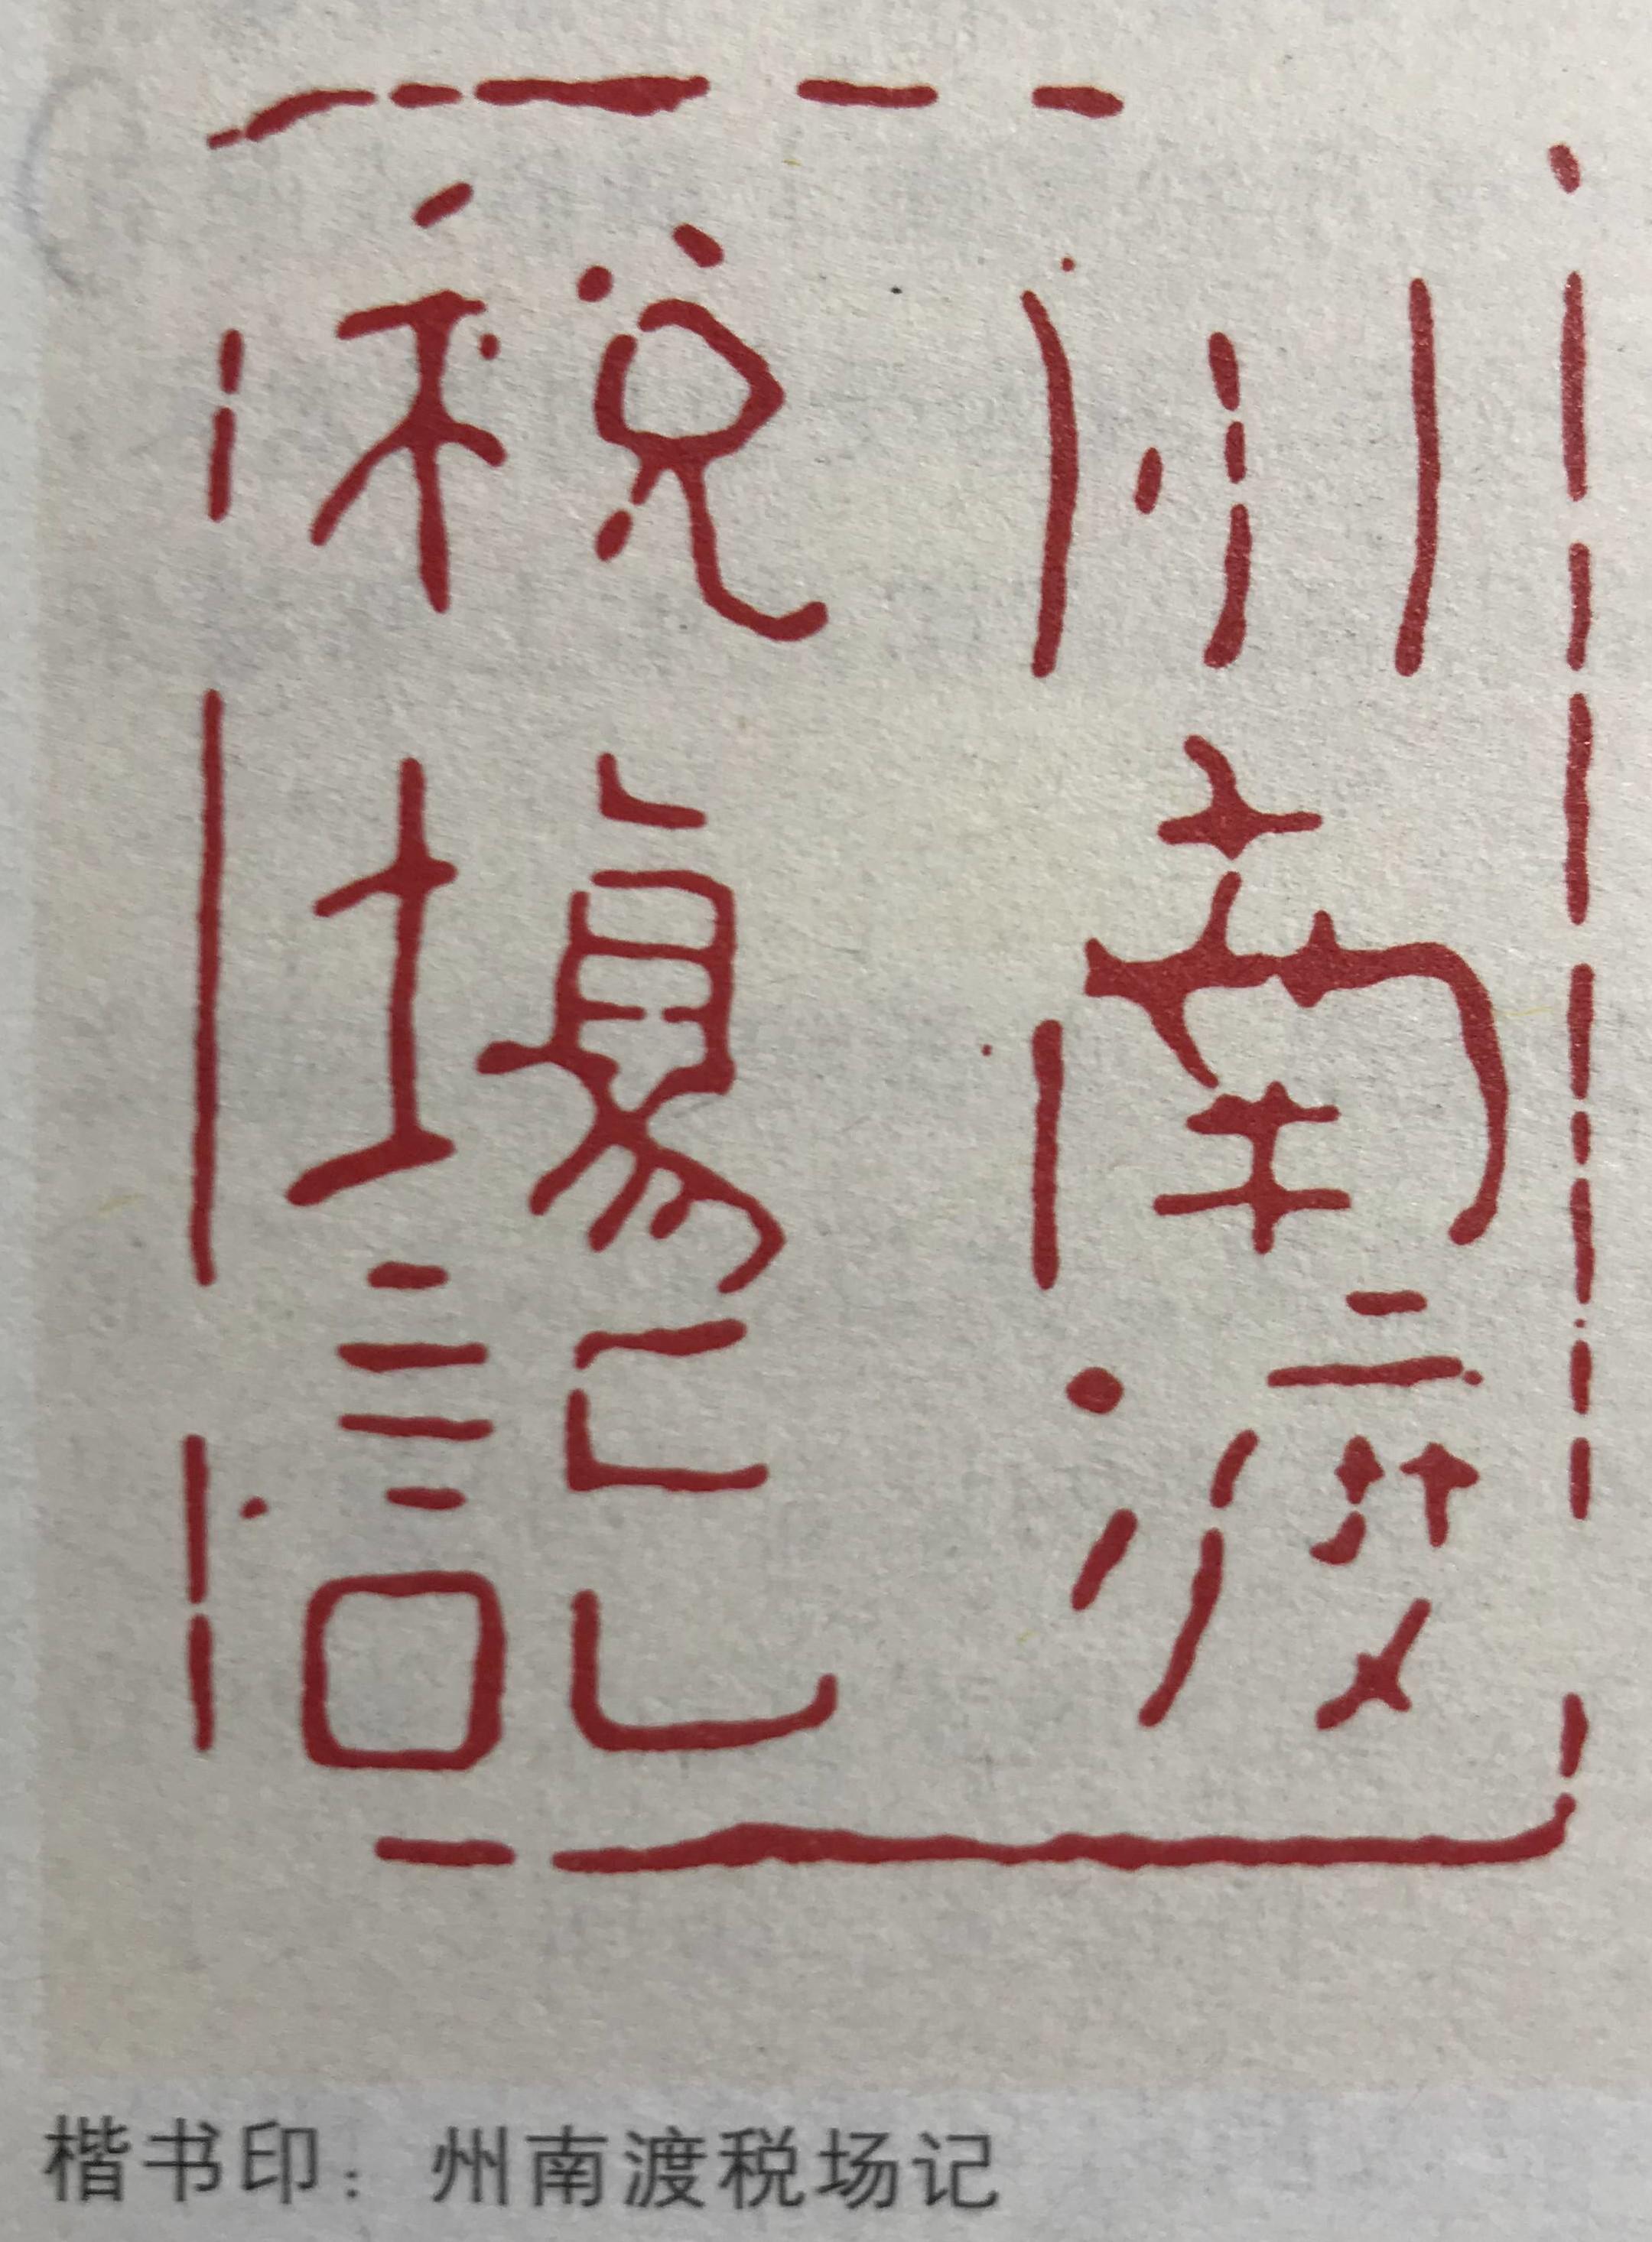 州南渡
税場記
楷书印：州南渡税场记